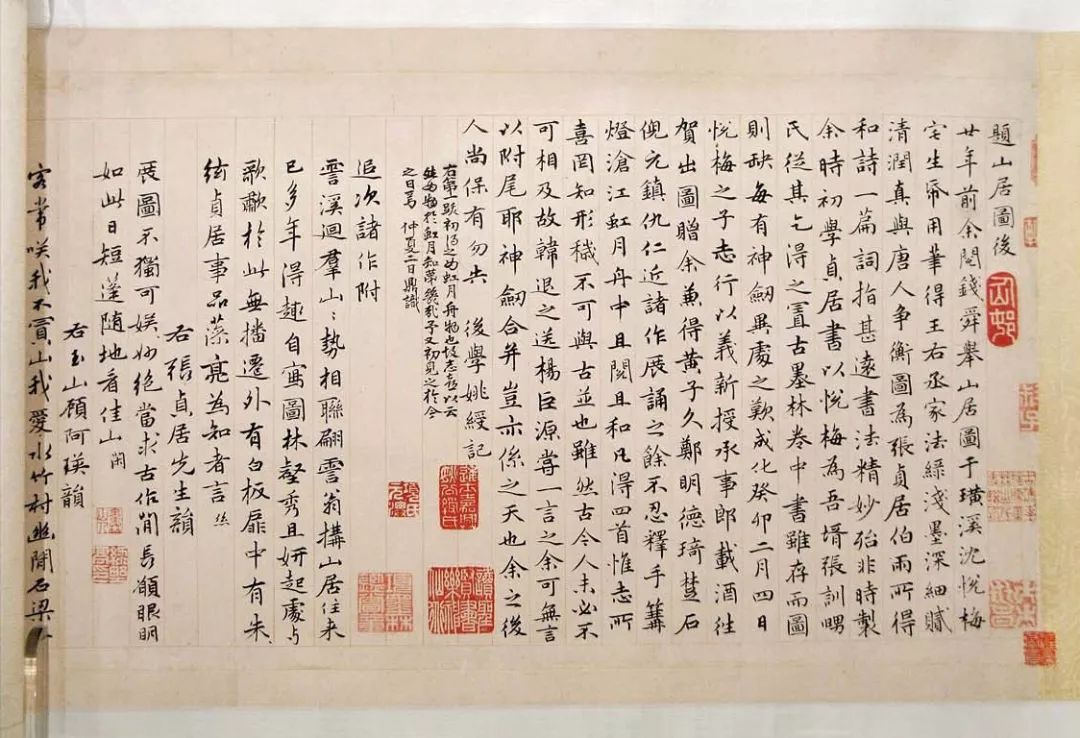 題山居圖後
廿年前余閱錢舜舉山居圖于璜溪沈悅梅
宅生帋用筆得王右丞家法綠淺墨深細膩
清潤真與唐人爭衡圖為張貞居伯雨所得
和詩一篇詞指甚遠書法精妙殆非時製
余時初學貞居書以悅梅為吾壻張訓
民從其乞得之置古墨林卷中書雖存而圖
則缺每有神劒異處之歎成化癸卯二月四日
悅梅之子志行以義新授承事郎載酒往
賀出圖贈余兼得黃子久鄭明德琦楚石
倪元鎮仇仁近諸作展誦之餘不忍釋手篝
燈滄江虹月舟中且閱且和凡得四首惟志所
喜罔知形穢不可與古並也雖然古今人未必不
可相及故韓退之送楊巨源嘗一言之余可無言
以附尾耶神劒合并豈亦係之天也余之後
人尚保有勿失 後學姚綬記
右第一跋初得之如虹月舟物也故志喜以云
之日焉 仲夏二日鼎識
追次諸作附
霅溪迴羣山山勢相聯翩霅翁搆山居往來
已多年得趣自寫圖林壑秀且妍起處与
歌歗於此無播遷外有白板扉中有朱
絃貞居事品藻亮為知者言 絲
右張貞居先生韻
展圖不獨可娛妙絕當求古作閒長願眼明
如此日短蓬隨地看佳山 閑
右玉山顧阿瑛韻
客常咲我不買山我愛水竹村幽閒石梁